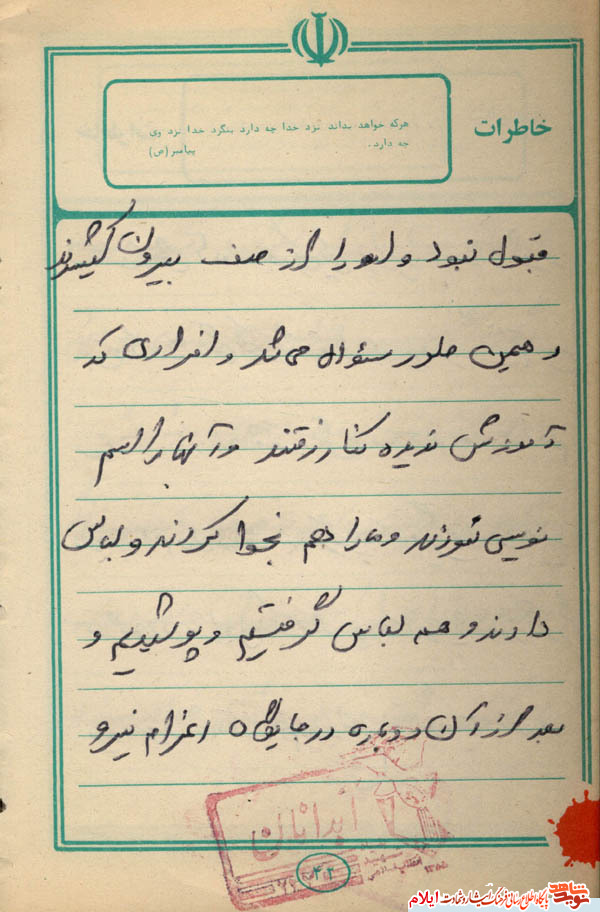 خاطرات
هرکه خواهد بداند نزد خدا چه دارد بنگرد خدا نزد وی
چه دارد. پیامبر (ص)
قبول نبود و او را از صف بیرون کشیدند
و همین طور سئوال می شد و افرادی که
آموزش ندیده کنار رفتند و آنها را اسم
نویسی نمودند و ما را هم نجوا کردند و لباس
دادند و همه لباس گرفتیم و پوشیدیم و
بعد از آن دوباره در جایگاه اعزام نیرو
آبدانان
۴۲
نوید شاهد
پایگاه اطلاع رسانی فرهنگ ایثار و شهادت ایلام